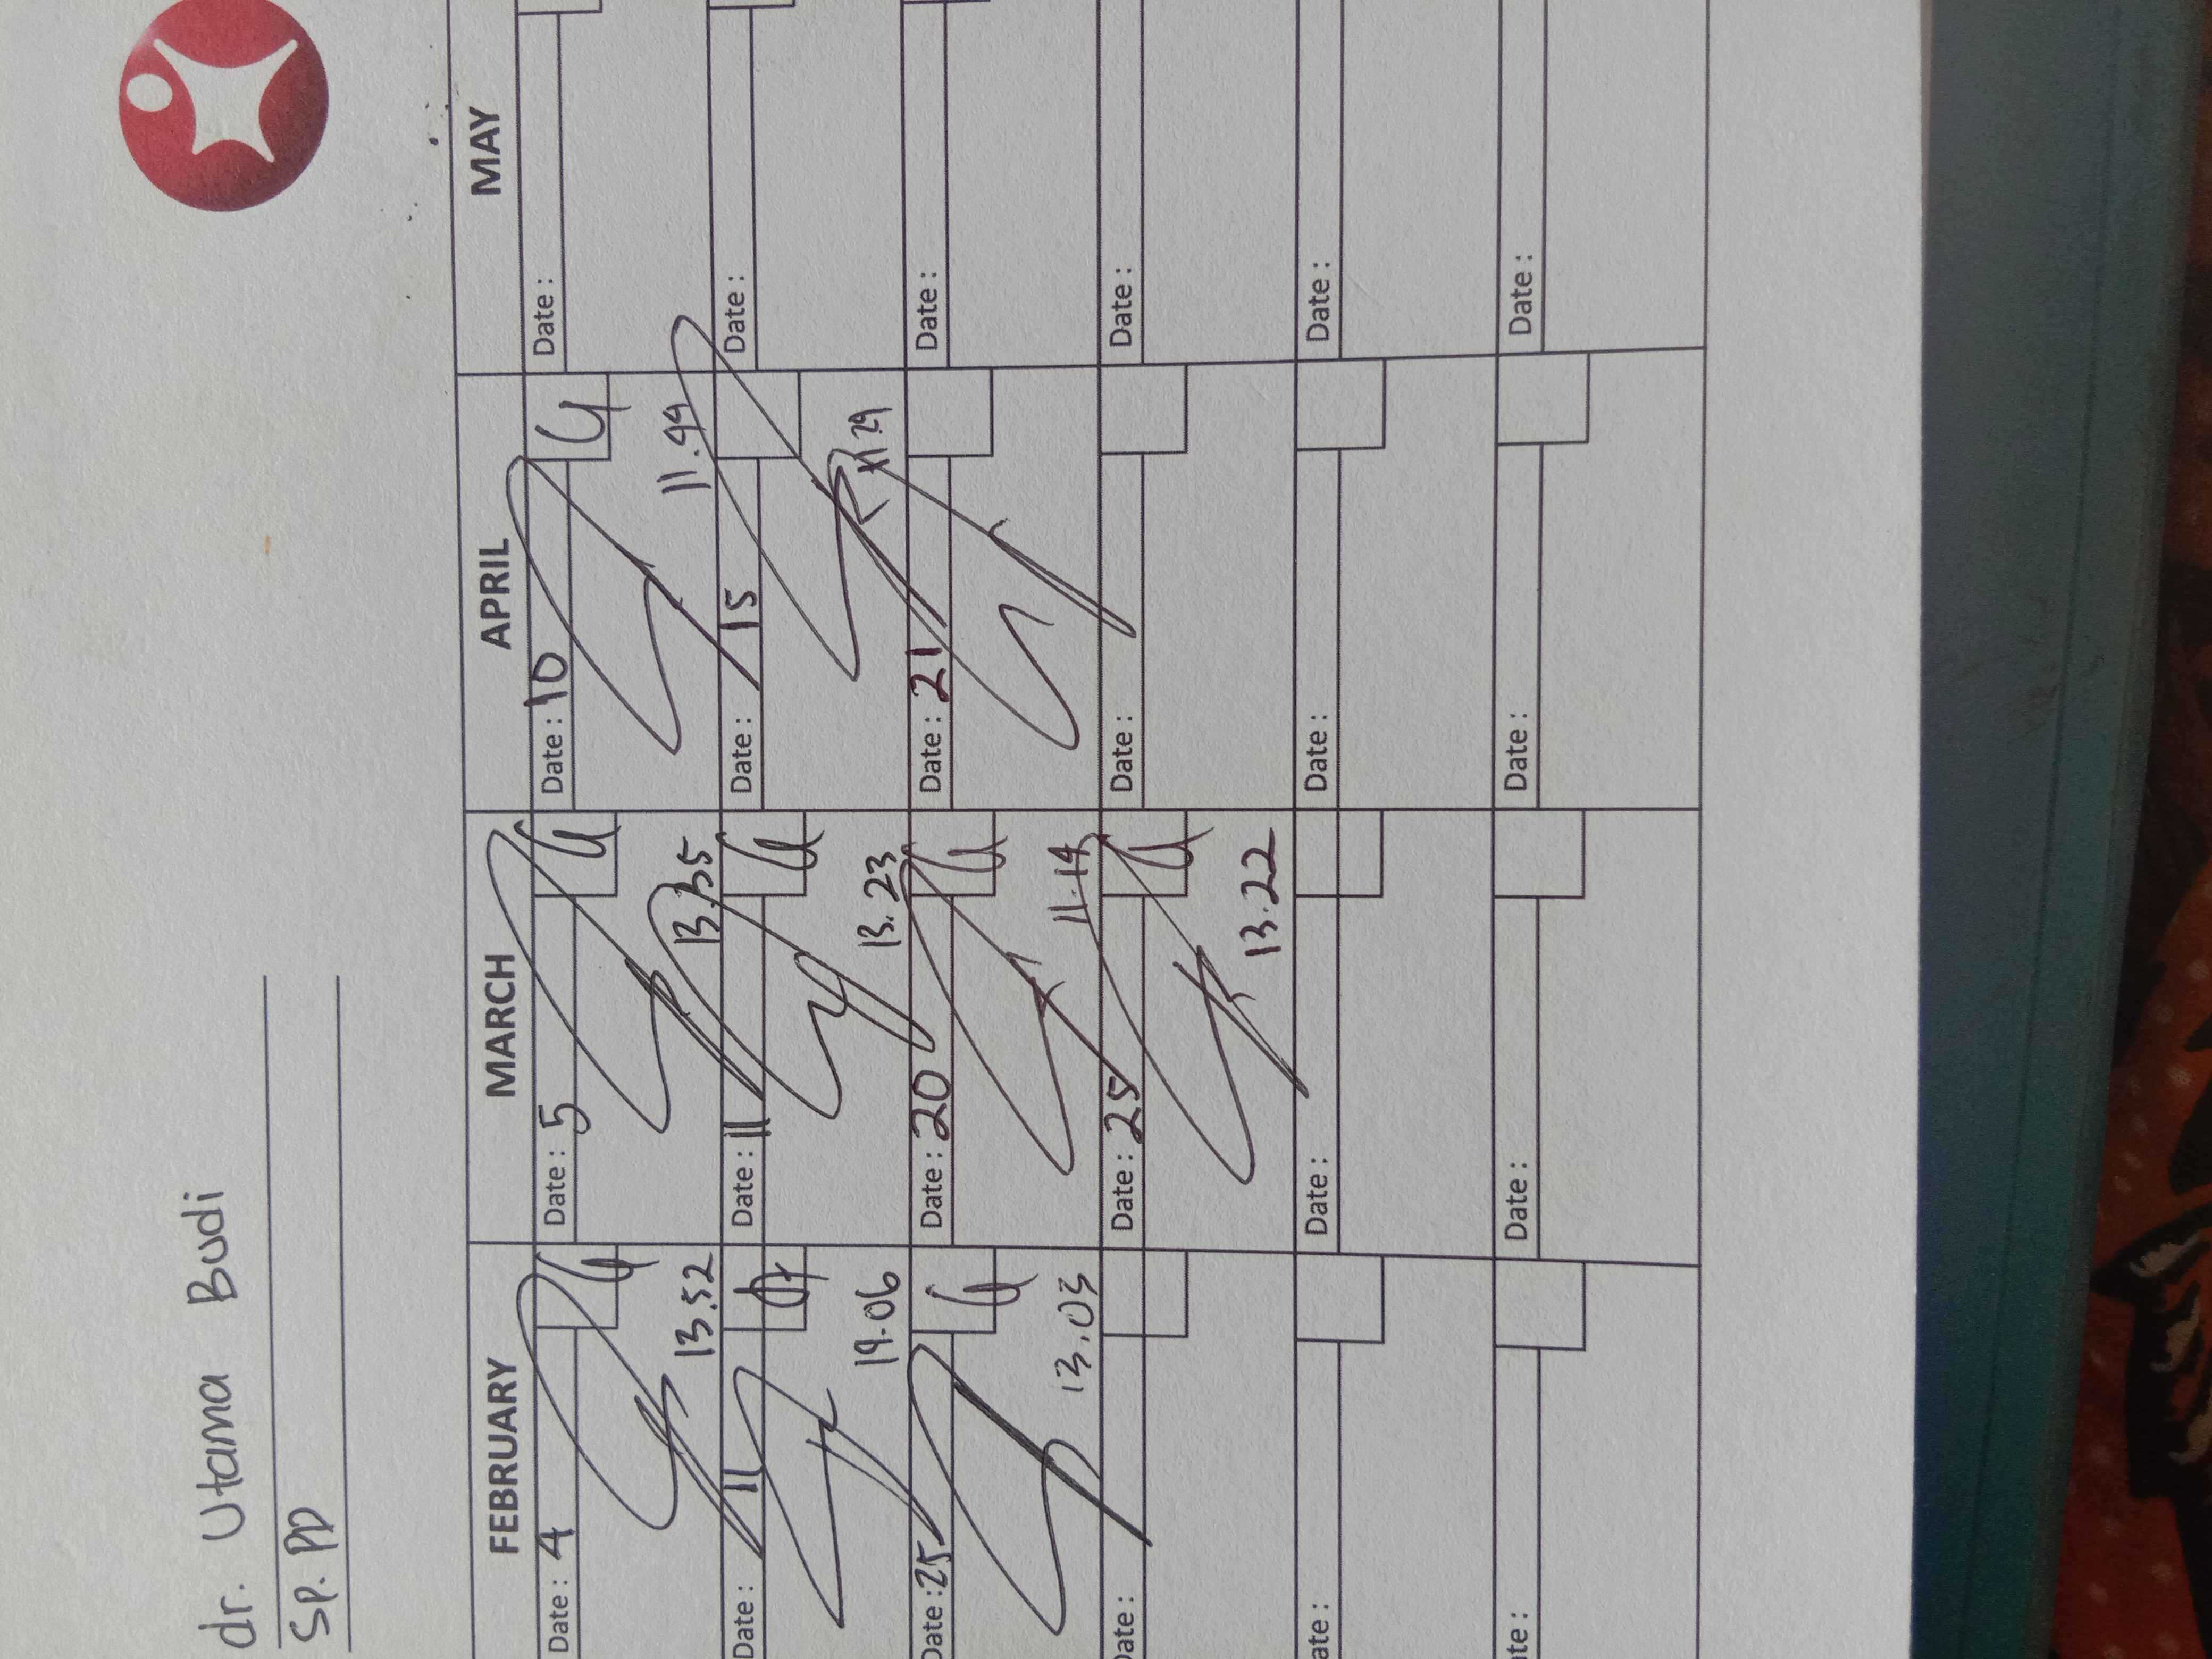 dr. Utama Budi
Sp. PD
FEBRUARY MARCH APRIL MAY
Date : 4 Date : 5 Date : 10 Date :
13.52 13.35 11.44
Date : 11 Date : 11 Date : 15 Date :
14.06 13.23 11.29
Date : 25 Date : 20 Date : 21 Date :
13.03 11.14
Date : Date : 25 Date : Date :
13.22
ate : Date : Date : Date :
te : Date : Date : Date :